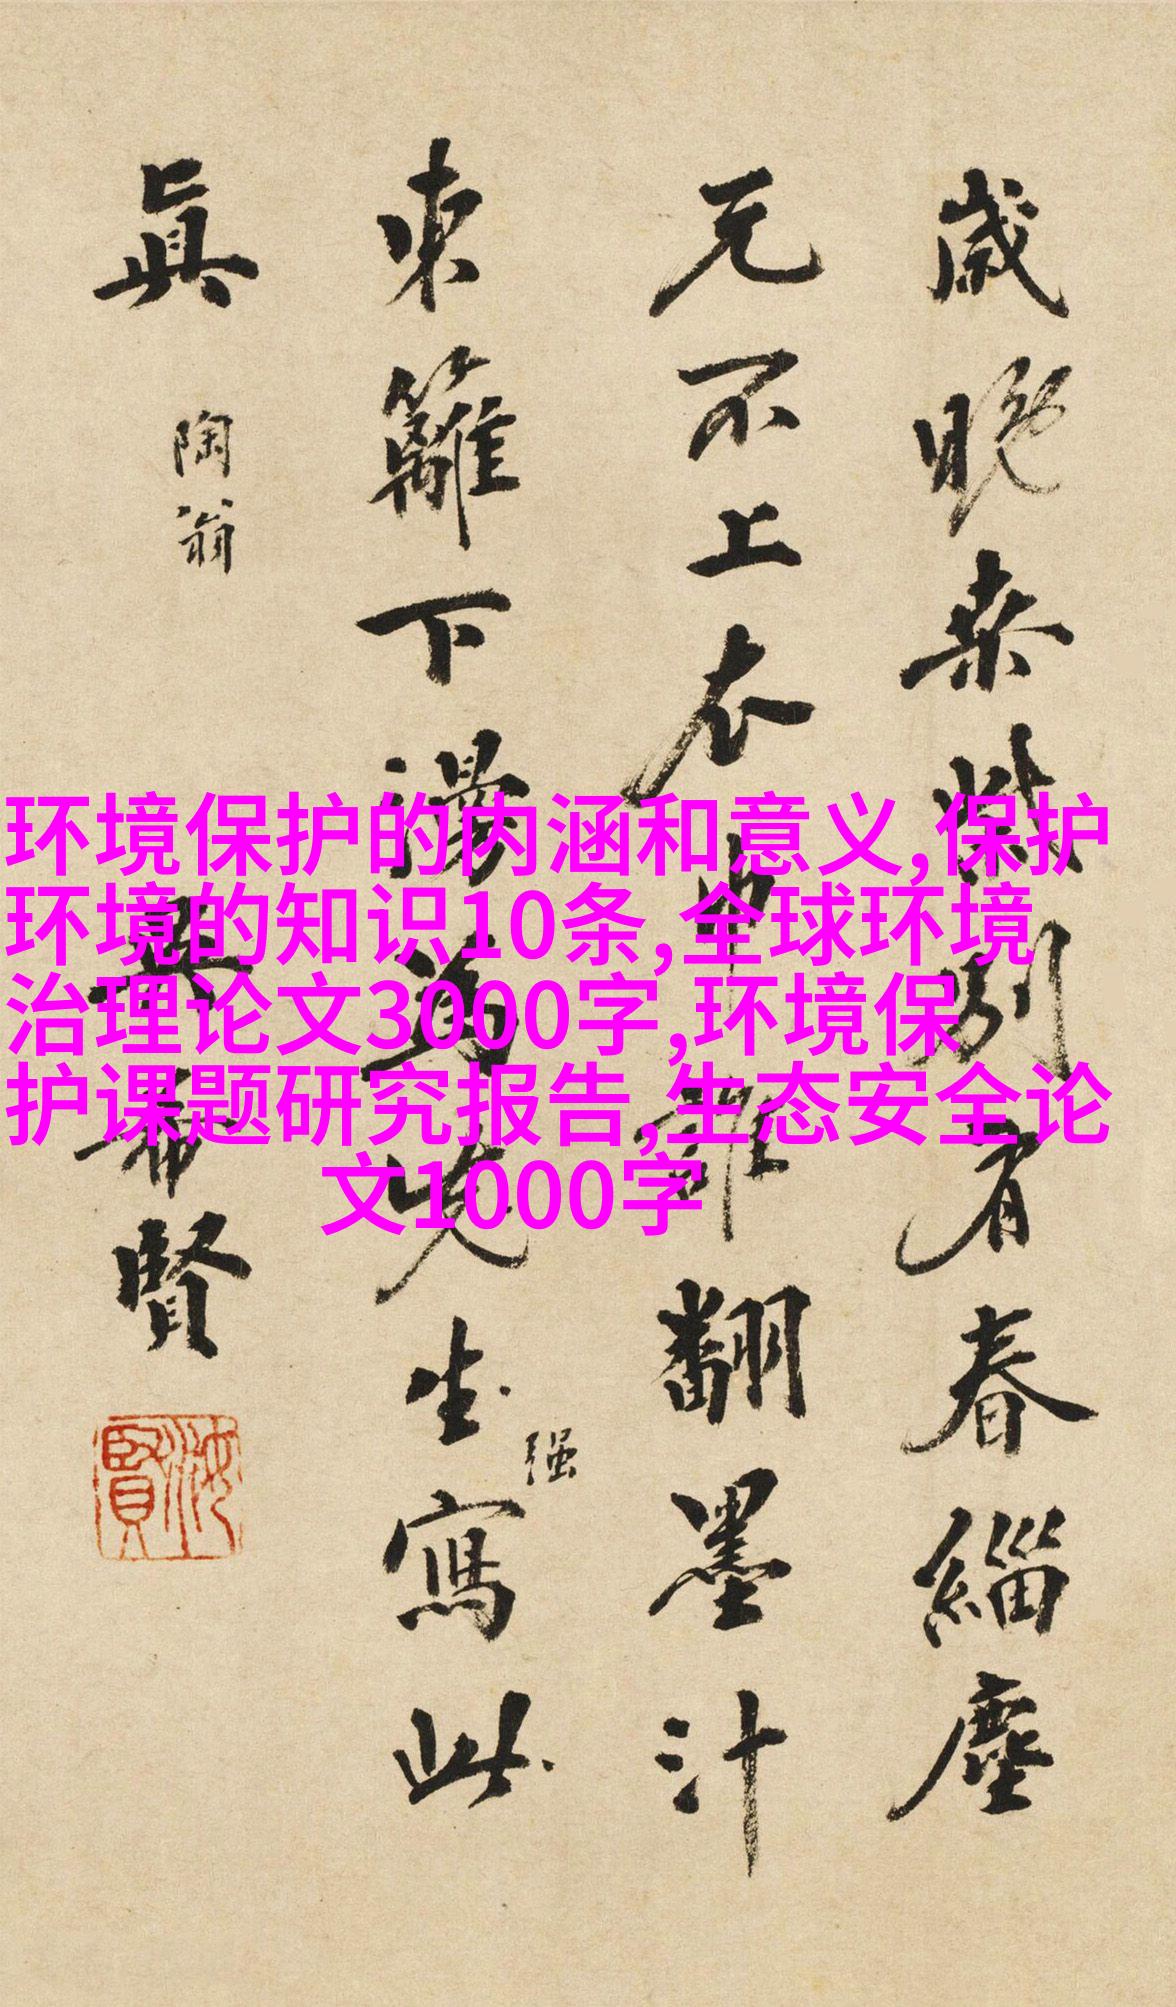 歲晚柴桑別有春緇塵
元不上衣巾誰翻墨汁
東籬下漫為先生寫此
强
真
陶翁
吳希賢
環境保护的内涵和意义,保护
环境的知识10条,全球环境
治理论文3000字,环境保
护课题研究报告,生态安全论
文1000字